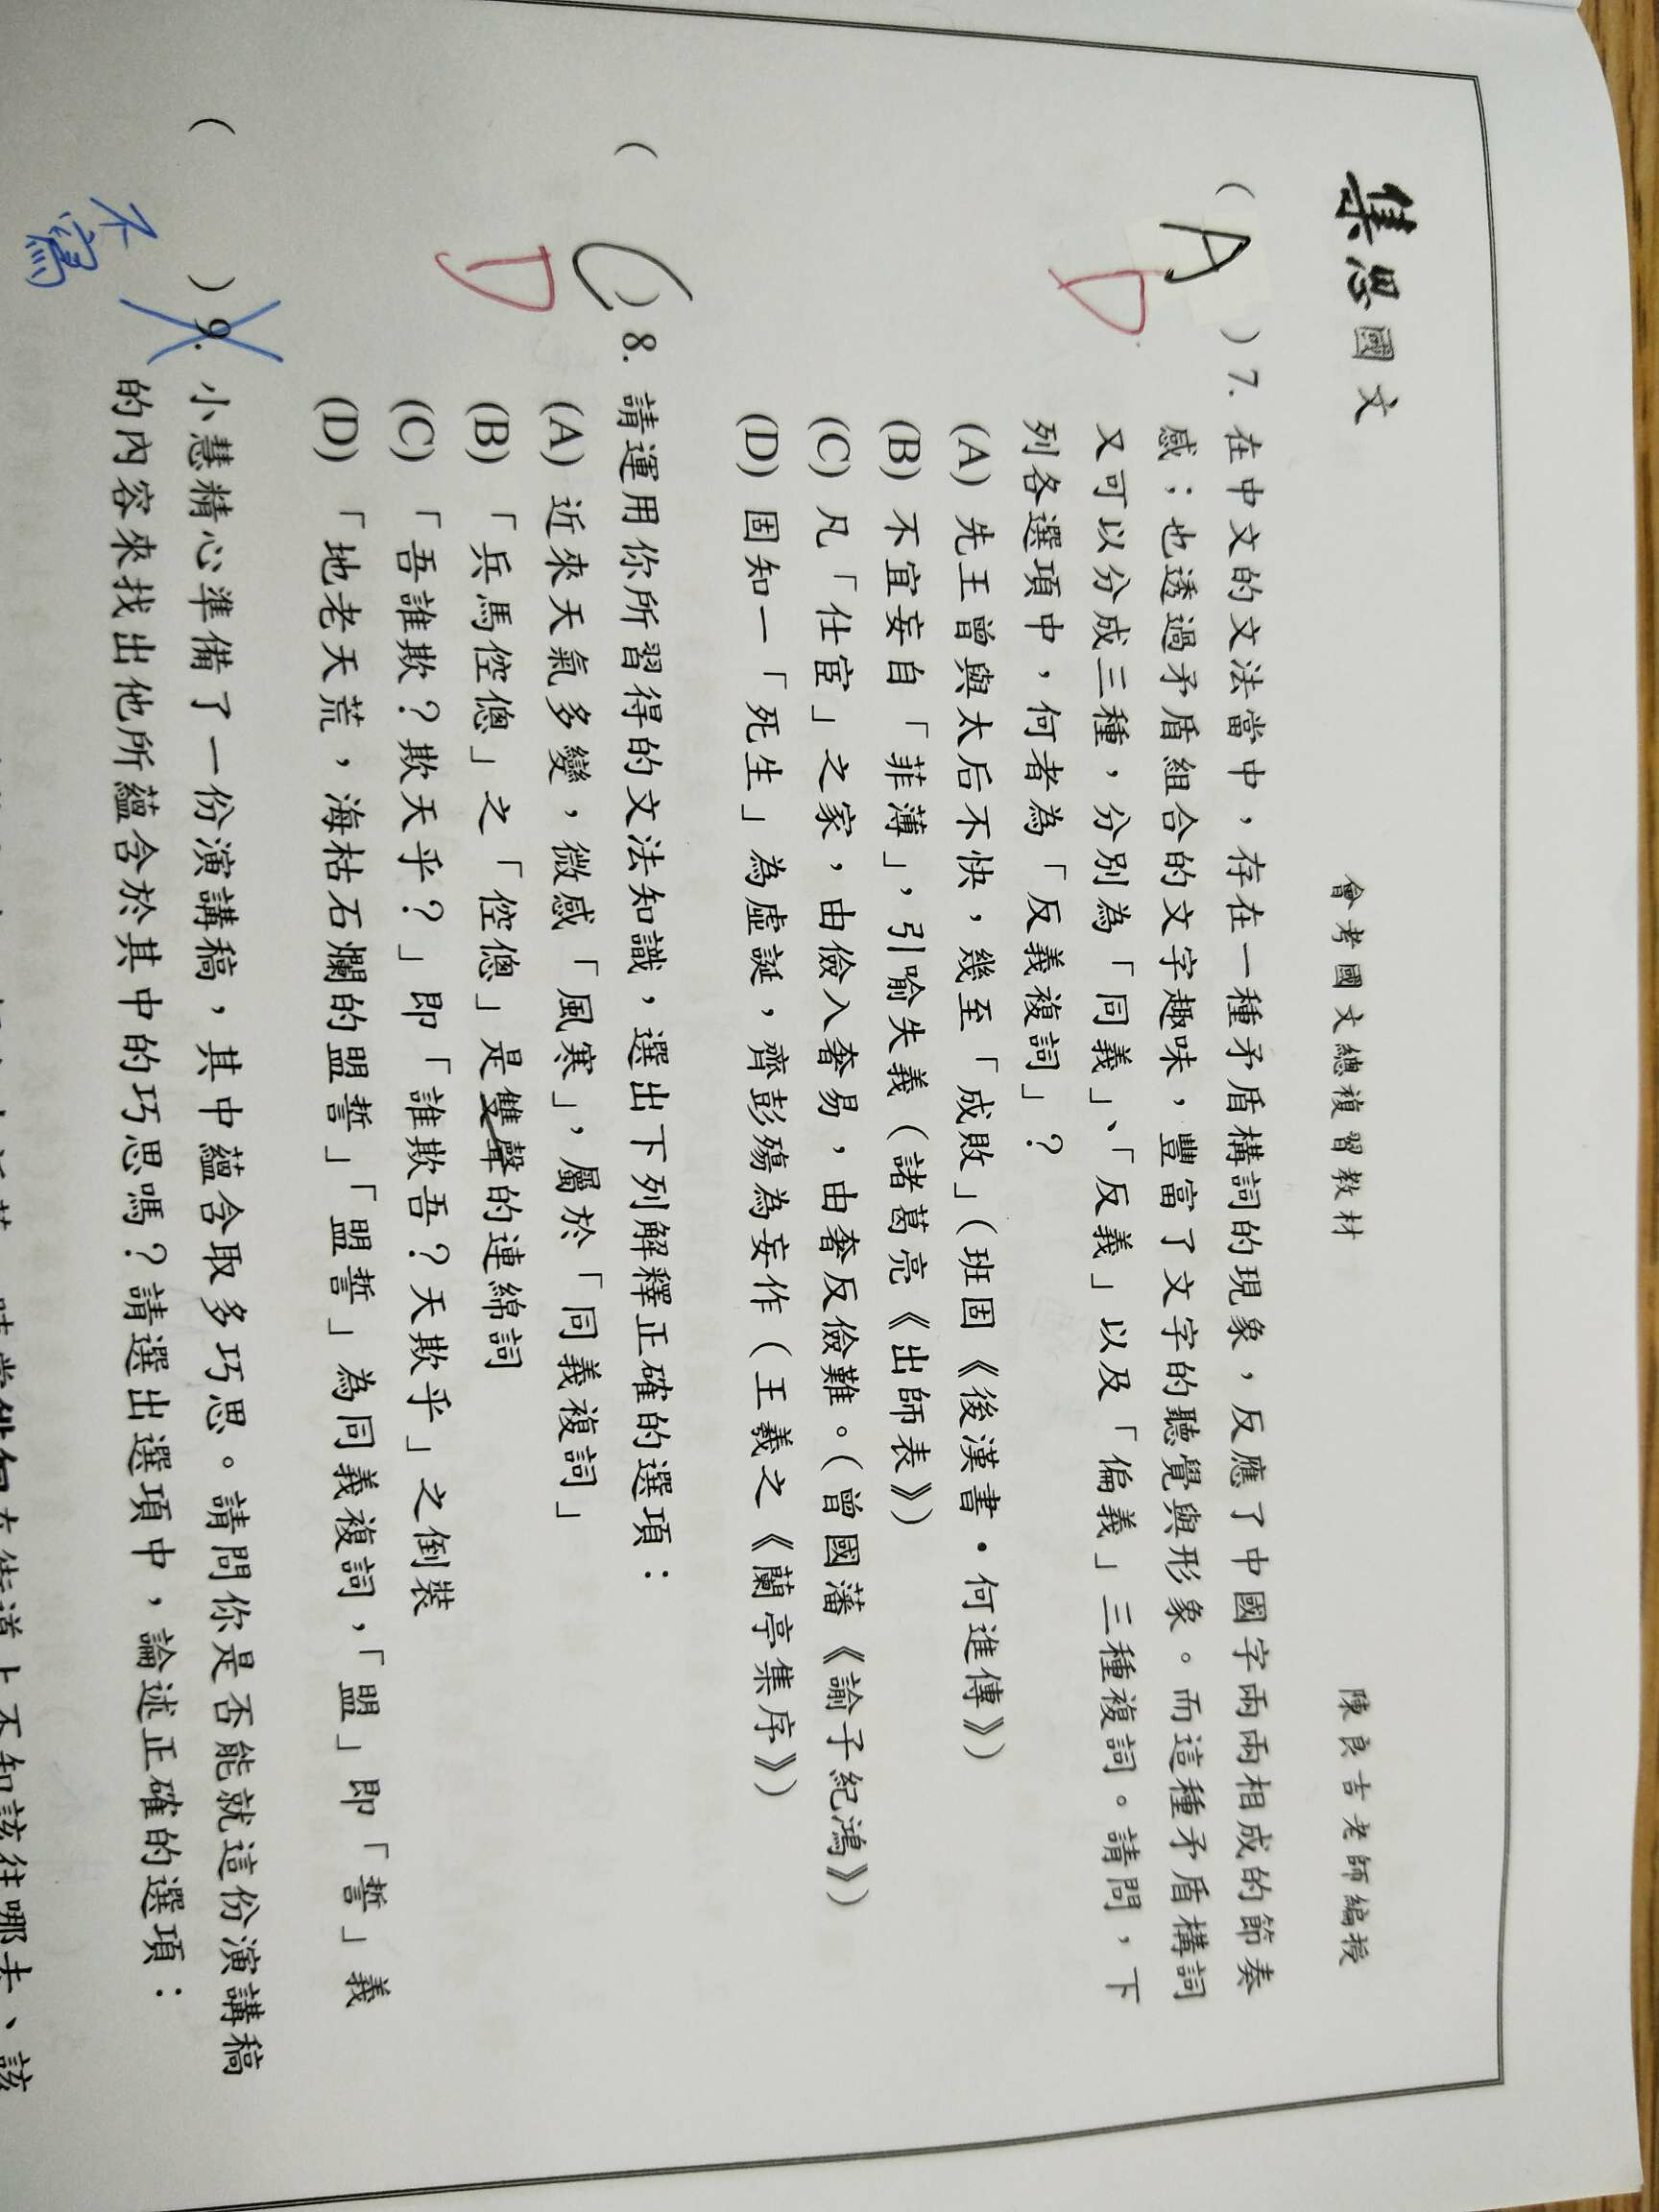 集思國文
會考國文總複習教材
陳良吉老師編授
( A )7. 在中文的文法當中，存在一種矛盾構詞的現象，反應了中國字兩兩相成的節奏
D
感；也透過矛盾組合的文字趣味，豐富了文字的聽覺與形象。而這種矛盾構詞
又可以分成三種，分別為「同義」、「反義」以及「偏義」三種複詞。請問，下
列各選項中，何者為「反義複詞」？
(A) 先王曾與太后不快，幾至「成敗」（班固《後漢書·何進傳》）
(B) 不宜妄自「菲薄」，引喻失義（諸葛亮《出師表》）
(C) 凡「仕宦」之家，由儉入奢易，由奢反儉難。（曾國藩《諭子紀鴻》）
(D) 固知一「死生」為虛誕，齊彭殤為妄作（王羲之《蘭亭集序》）
( C )8. 請運用你所習得的文法知識，選出下列解釋正確的選項：
D
(A) 近來天氣多變，微感「風寒」，屬於「同義複詞」
(B) 「兵馬倥傯」之「倥傯」是雙聲的連綿詞
(C) 「吾誰欺？欺天乎？」即「誰欺吾？天欺乎」之倒裝
(D) 「地老天荒，海枯石爛的盟誓」「盟誓」為同義複詞，「盟」即「誓」義
( )9. 小慧精心準備了一份演講稿，其中蘊含取多巧思。請問你是否能就這份演講稿
不寫
的內容來找出他所蘊含於其中的巧思嗎？請選出選項中，論述正確的選項：
在街道上不知該往哪去、該